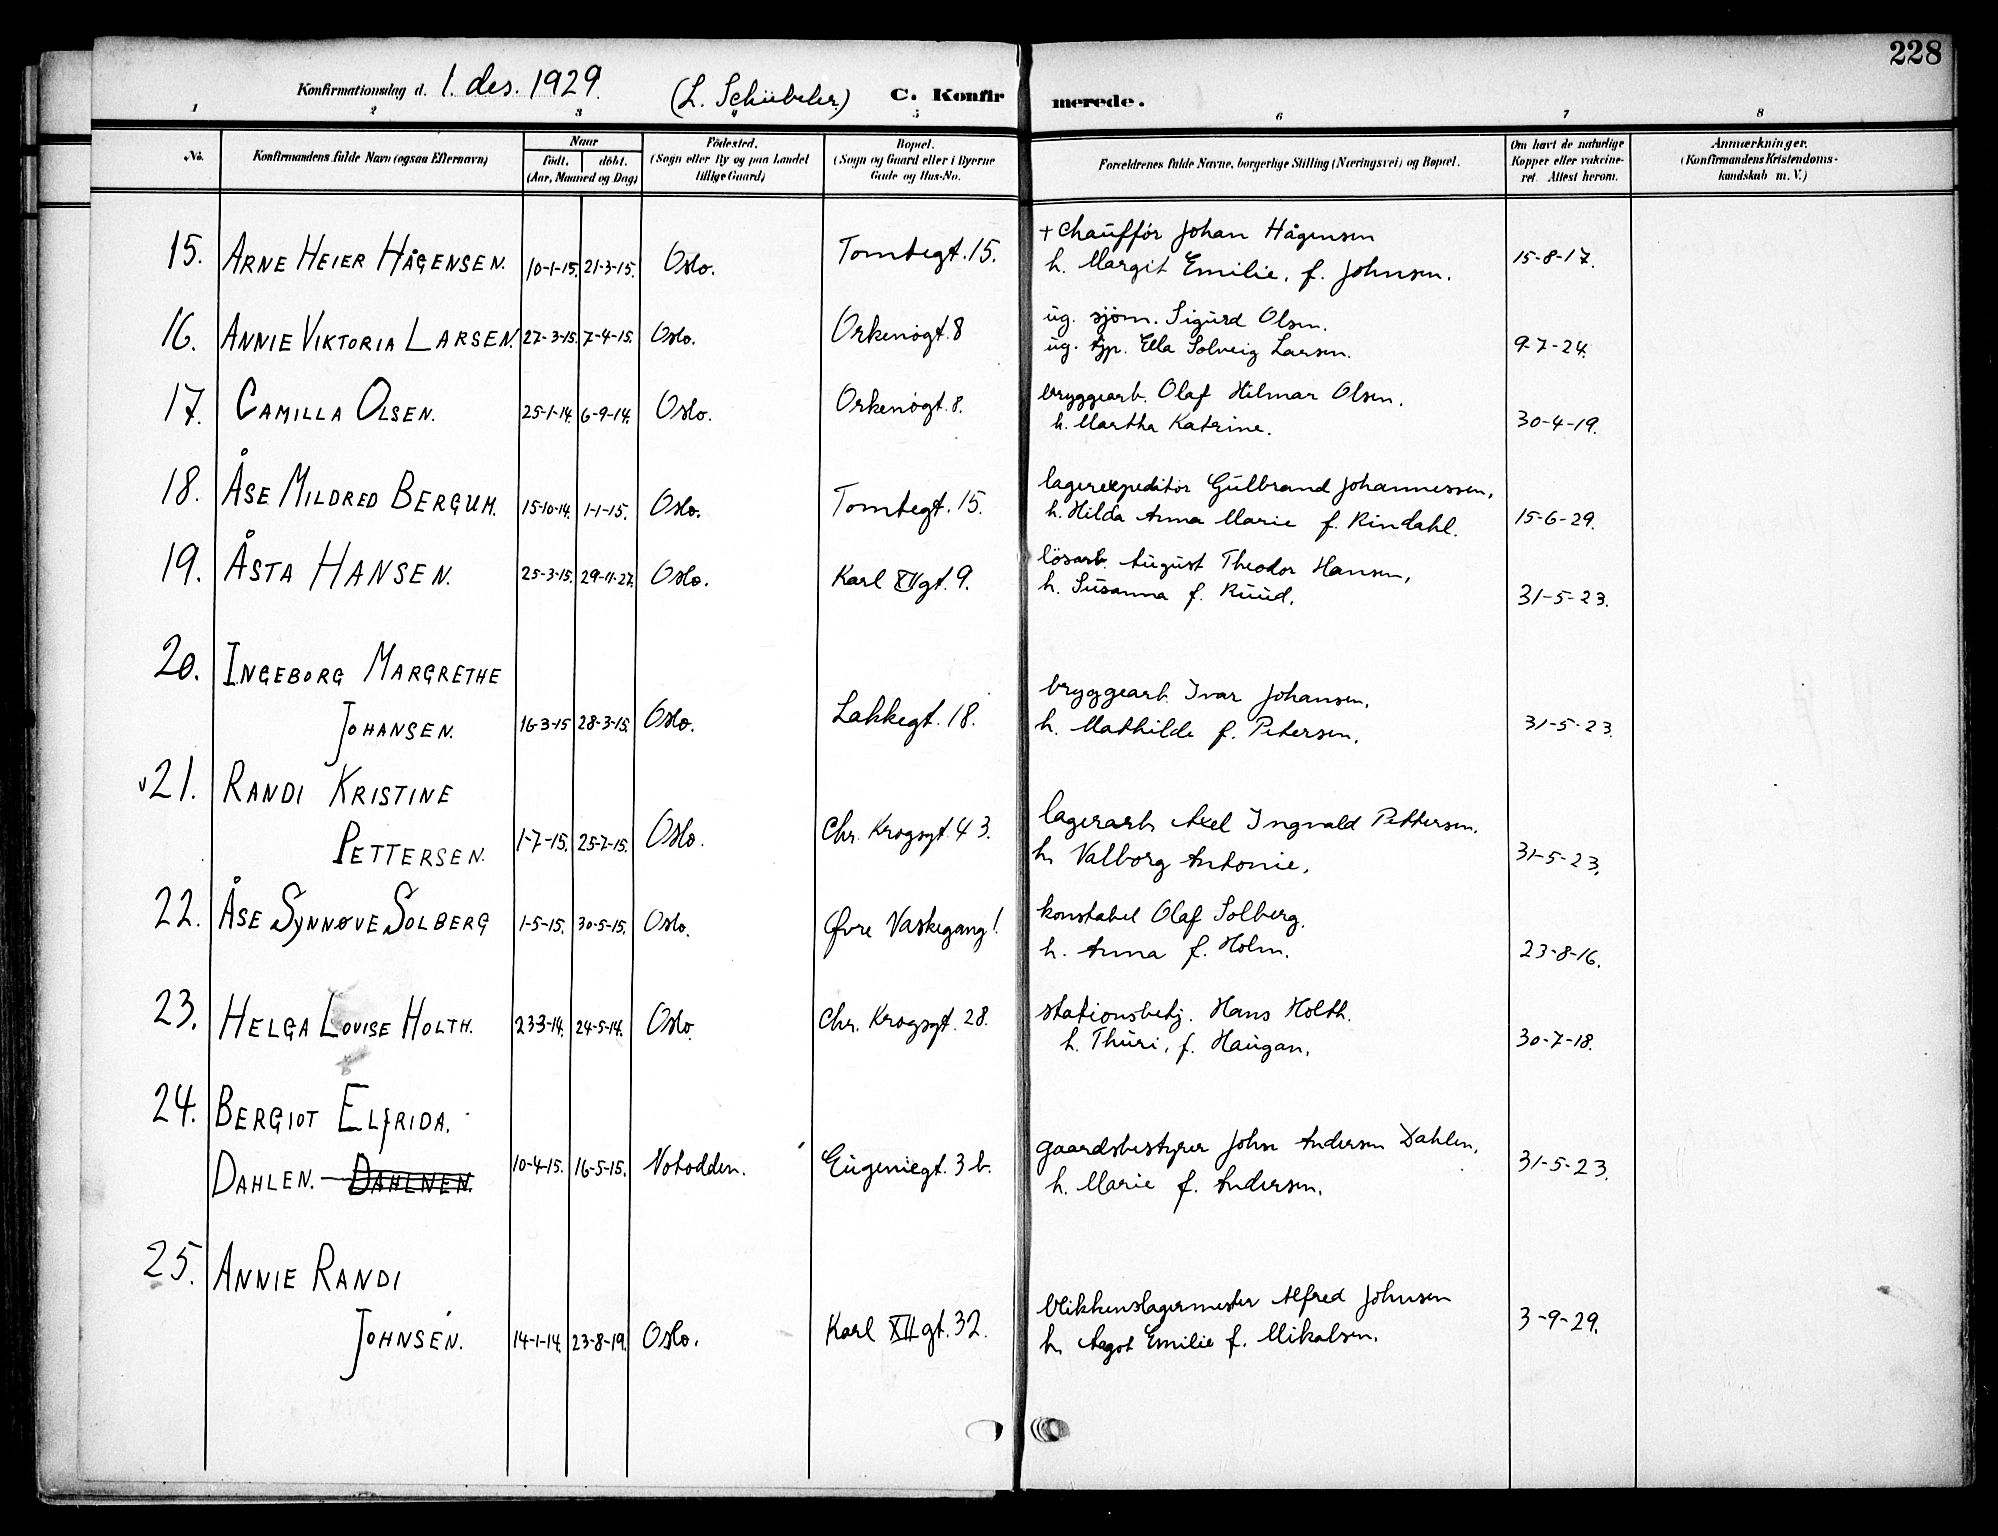 228
Konfirmationsdag d. 1. des. 1929. (L. Schübeler.) C. Konfirmerede.
1 2 3 4 5 6 7 8
No. Konfirmandens fulde Navn (ogsaa Efternavn) Naar födt. döbt. (Aar, Maaned og Dag) Födested. (Sogn eller By og paa Landet tillige Gaard) Bopæl. (Sogn og Gaard eller i Byerne Gade og Hus-No. Forældrenes fulde Navne, borgerlige Stilling (Næringsvei) og Bopæl. Om havt de naturlige Kopper eller vakcineret. Attest herom. Anmærkninger. (Konfirmandens Kristendomskundskab m. V.)
15. ARNE HEIER HÅGENSEN. 10-1-15. 21-3-15. Oslo. Tomtegt. 15. + Chauffór Johan Hågensen 15-8-17.
h. Margit Emilie, f. Johnsen.
16. ANNIE VIKTORIA LARSEN. 27-3-15. 7-4-15. Oslo. Orkenøgt. 8 ug. sjóm. Sigurd Olsen. 9-7-24.
ug. tjp. Ella Solveig Larsen.
17. CAMILLA OLSEN. 25-1-14. 6-9-14. Oslo. Orkenøgt. 8. bryggearb. Olaf Hilmar Olsen. 30-4-19.
h. Martha Katrine.
18. ÅSE MILDRED BERGUM. 15-10-14. 1-1-15. Oslo. Tomtegt. 15. lagerexpeditör Gulbrand Johannessen, 15-6-29.
h. Hilda Anna Marie f. Rindahl.
19. ÅSTA HANSEN. 25-3-15. 29-11-27. Oslo. Karl XIIgt. 9. lösarb. August Theodor Hansen, 31-5-23.
h. Susanna f. Ruud.
20. INGEBORG MARGRETHE
JOHANSEN. 16-3-15 28-3-15. Oslo. Lakkegt. 18. bryggearb. Ivar Johansen, 31-5-23.
h. Mathilde f. Petersen.
v 21. RANDI KRISTINE
PETTERSEN. 1-7-15. 25-7-15. Oslo. Chr. Krogsgt. 43. lagerarb. Axel Ingvald Pettersen. 31-5-23.
h. Valborg Antonie.
22. ÅSE SYNNØVE SOLBERG 1-5-15. 30-5-15. Oslo. Øvre Vaskegang 1. konstabel Olaf Solberg. 23-8-16.
h. Anna f. Holm.
23. HELGA LOVISE HOLTH. 23-3-14. 24-5-14. Oslo. Chr. Krogsgt. 28. stationsbetj. Hans Holth. 30-7-18.
h. Thuri, f. Haugan.
24. BERGIOT ELFRIDA.
DAHLEN. DAHLNEN. 10-4-15. 16-5-15. Notodden. Eugeniegt. 3 b. gaardsbestyrer John Andersen Dahlen, 31-5-23.
h. Marie f. Andersen.
25. ANNIE RANDI
JOHNSEN. 14-1-14. 23-8-19. Oslo. Karl XIIgt. 32. blikkenslagermester Alfred Johnsen 3-9-29.
h. Aagot Emilie f. Mikalsen.